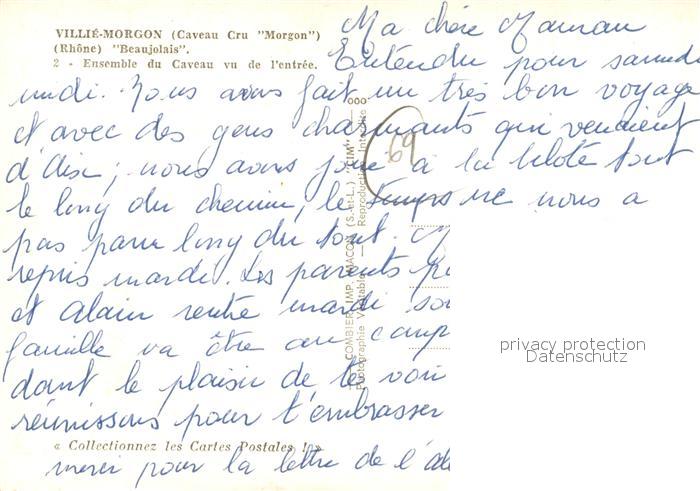 VILLIÉ-MORGON (Caveau Cru "Morgon")
(Rhône) "Beaujolais".
2 - Ensemble du Caveau vu de l'entrée.
Ma chère Maman
Entendu pour samedi
midi. Nous avons fait un très bon voyage
et avec des gens charmants qui venaient
d'Aix ; nous avons joué à la belote tout
le long du chemin, le temps ne nous a
pas paru long du tout.
repris mardi. Les parents
et Alain rentre mardi
famille va être au comp
dant le plaisir de te voir
réunissons pour t'embrasser
merci pour la lettre de l'
« Collectionnez les Cartes Postales ! »
COMBIER IMP. MACON (S.-et-L.) "CIM"
Photographie Véritable - Reproduction Interdite
69
privacy protection
Datenschutz